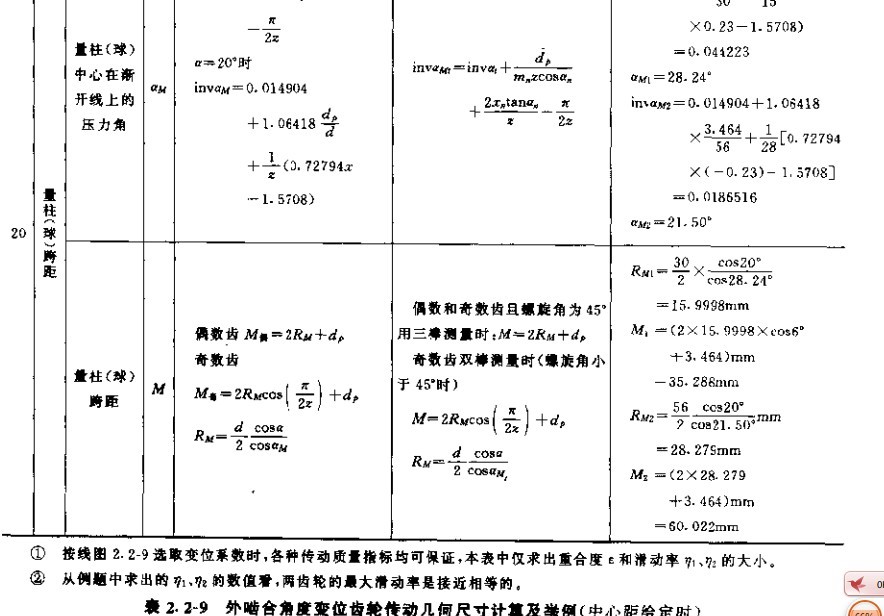 20
量柱(球)跨距
量柱(球)
中心在渐
开线上的
压力角
αM
−π/2z
α=20°时
invαM=0.014904
+1.06418 dp/d
+1/z(0.72794x
−1.5708)
invαMt=invαt+dp/(mnzcosαn)
+2xntanαn/z−π/2z
30 15
×0.23−1.5708)
=0.044223
αM1=28.24°
invαM2=0.014904+1.06418
×3.464/56+1/28[0.72794
×(−0.23)−1.5708]
=0.0186516
αM2=21.50°
量柱(球)
跨距
M
偶数齿 M偶=2RM+dp
奇数齿
M奇=2RMcos(π/2z)+dp
RM=d/2 cosα/cosαM
偶数和奇数齿且螺旋角为45°
用三棒测量时:M=2RM+dp
奇数齿双棒测量时(螺旋角小
于45°时)
M=2RMcos(π/2z)+dp
RM=d/2 cosα/cosαMt
RM1=30/2×cos20°/cos28.24°
=15.9998mm
M1=(2×15.9998×cos6°
+3.464)mm
=35.288mm
RM2=56/2 cos20°/cos21.50°mm
=28.279mm
M2=(2×28.279
+3.464)mm
=60.022mm
① 按线图2.2-9选取变位系数时,各种传动质量指标均可保证,本表中仅求出重合度ε和滑动率η1、η2的大小。
② 从例题中求出的η1、η2的数值看,两齿轮的最大滑动率是接近相等的。
表2.2-9 外啮合角度变位齿轮传动几何尺寸计算及举例(中心距给定时)